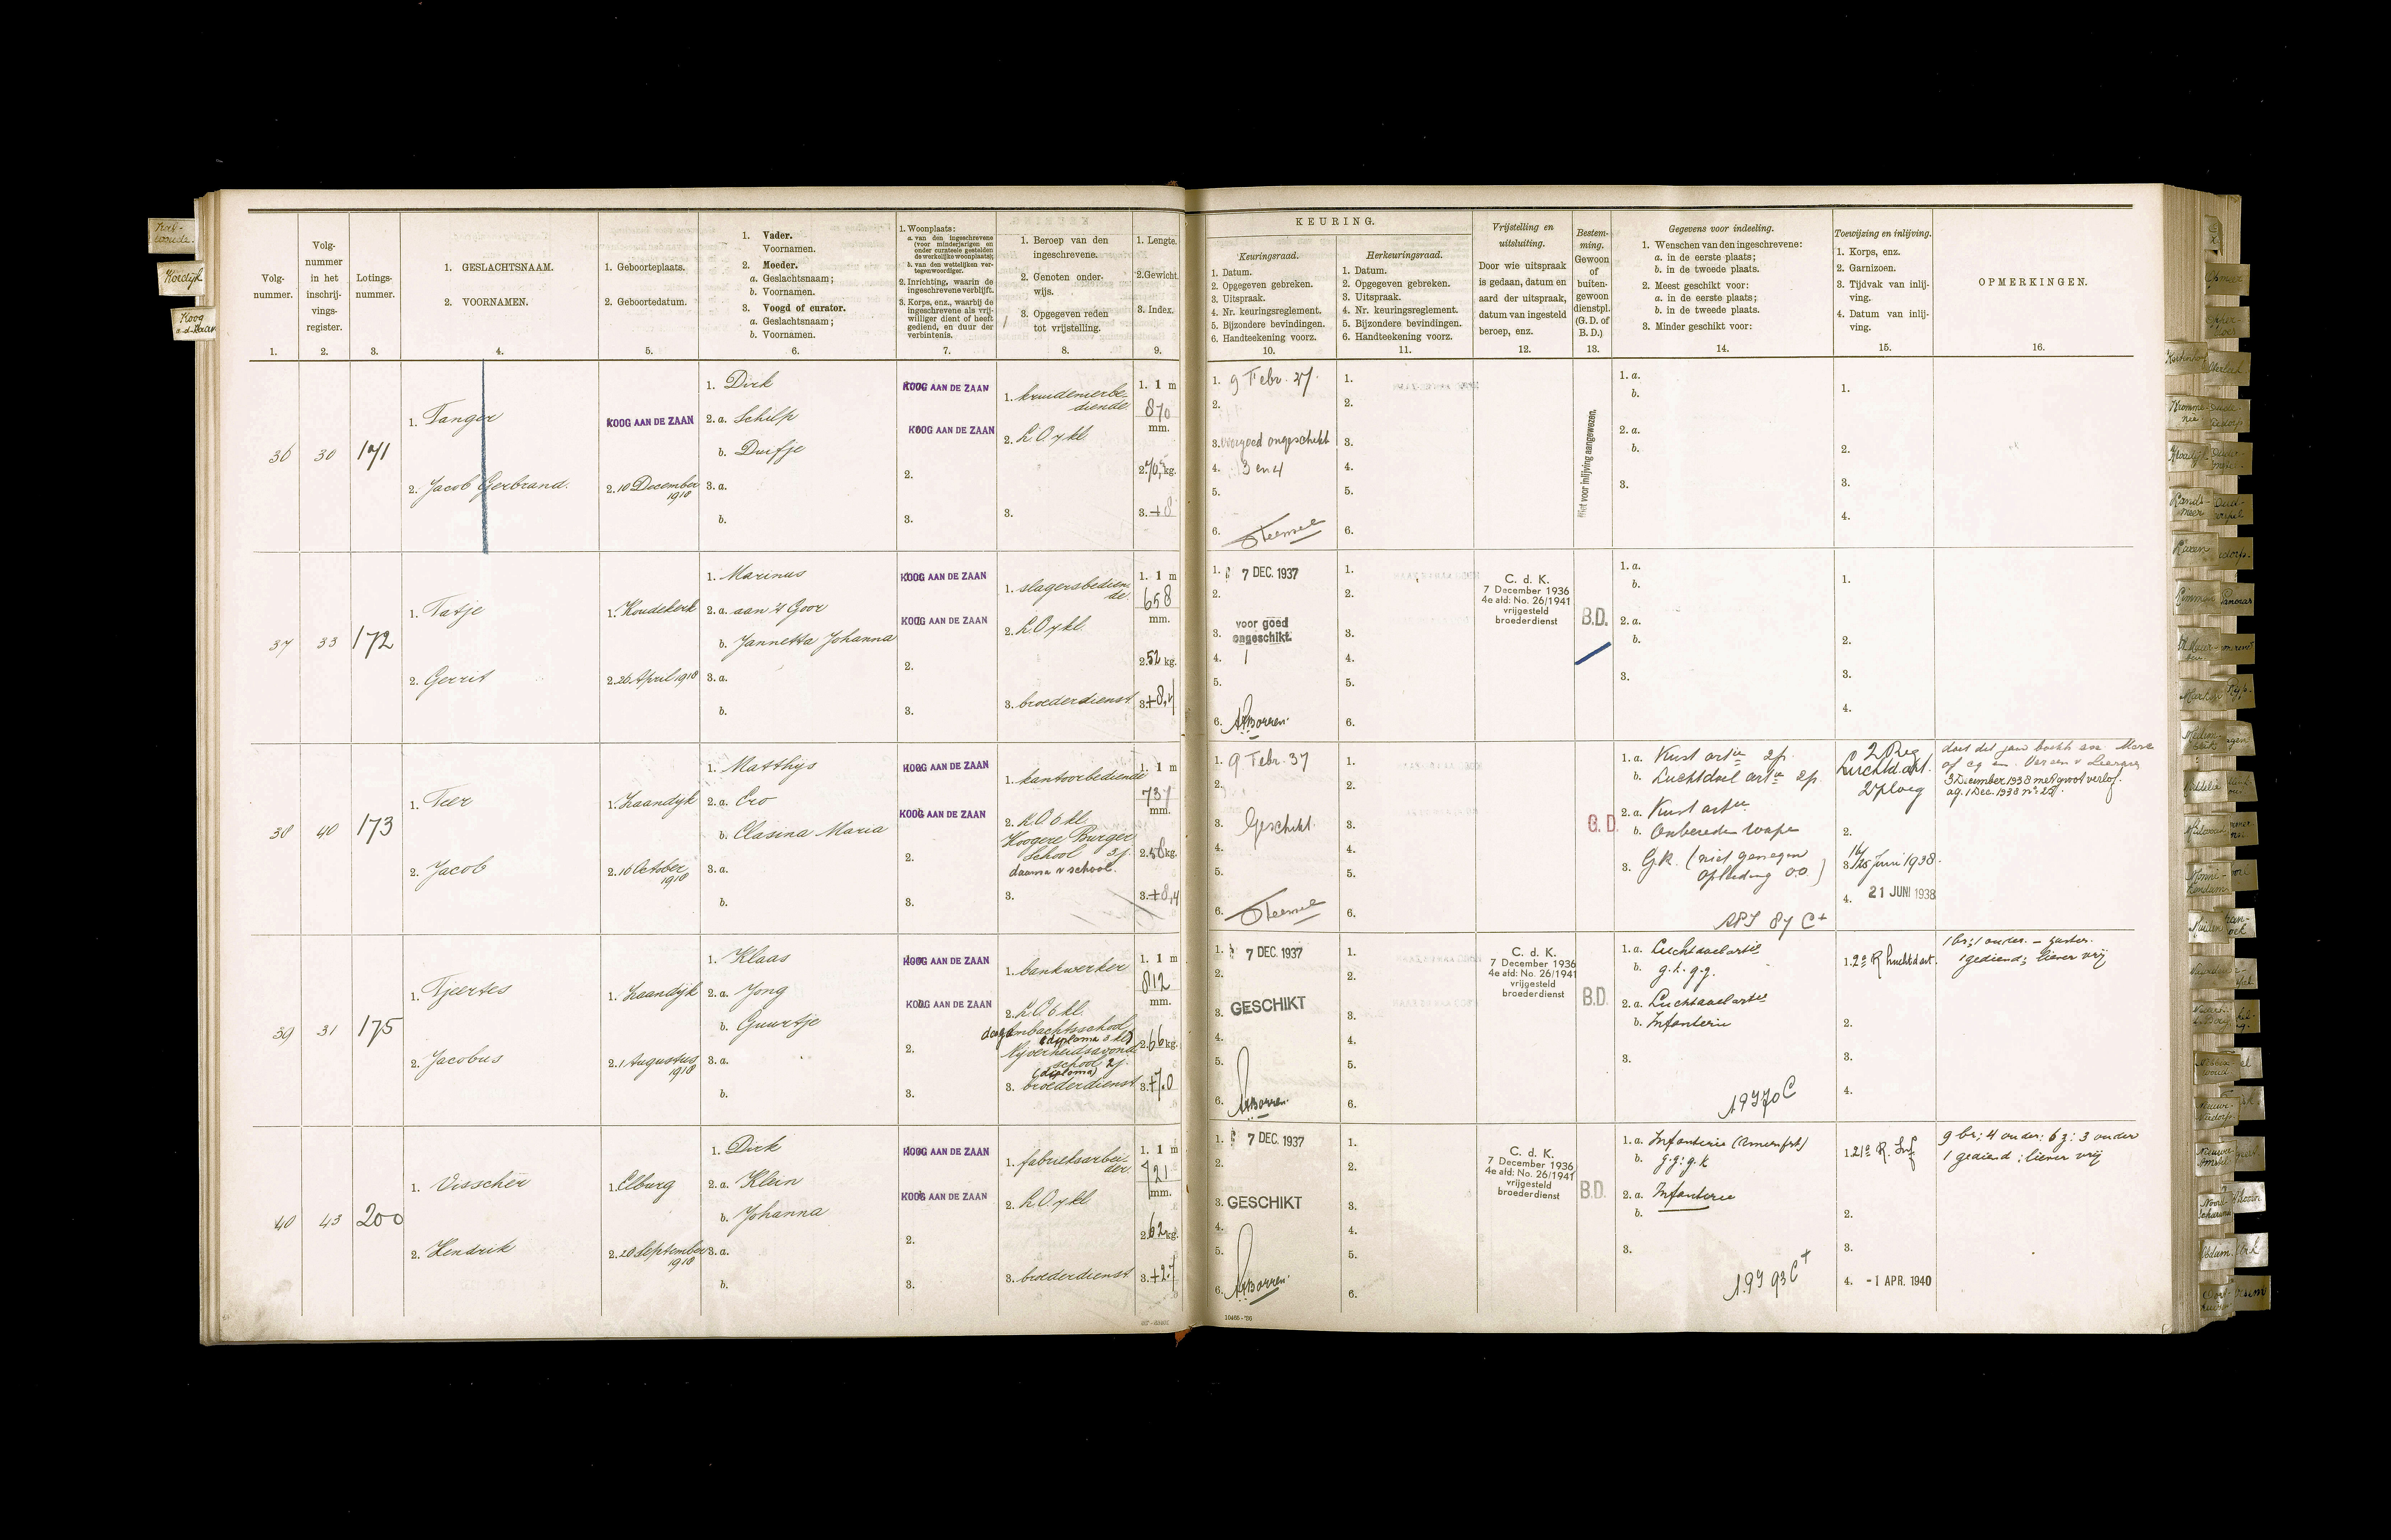 KEURING.
Volg-
nummer.
1.
Volg-
nummer
in het
inschrij-
vings-
register.
2.
Lotings-
nummer.
3.
1. GESLACHTSNAAM.
2. VOORNAMEN.
4.
1. Geboorteplaats.
2. Geboortedatum.
5.
1. Vader.
Voornamen.
2. Moeder.
a. Geslachtsnaam;
b. Voornamen.
3. Voogd of curator.
a. Geslachtsnaam;
b. Voornamen.
6.
1. Woonplaats:
a. van den ingeschrevene
(voor minderjarigen en
onder curateele gestelden
de werkelijke woonplaats);
b. van den wettelijken ver-
tegenwoordiger.
2. Inrichting, waarin de
ingeschrevene verblijft.
3. Korps, enz., waarbij de
ingeschrevene als vrij-
williger dient of heeft
gediend, en duur der
verbintenis.
7.
1. Beroep van den
ingeschrevene.
2. Genoten onder-
wijs.
3. Opgegeven reden
tot vrijstelling.
8.
1. Lengte.
2. Gewicht.
3. Index.
9.
Keuringsraad.
1. Datum.
2. Opgegeven gebreken.
3. Uitspraak.
4. Nr. keuringsreglement.
5. Bijzondere bevindingen.
6. Handteekening voorz.
10.
Herkeuringsraad.
1. Datum.
2. Opgegeven gebreken.
3. Uitspraak.
4. Nr. keuringsreglement.
5. Bijzondere bevindingen.
6. Handteekening voorz.
11.
Vrijstelling en
uitsluiting.
Door wie uitspraak
is gedaan, datum en
aard der uitspraak,
datum van ingesteld
beroep, enz.
12.
Bestem-
ming.
Gewoon
of
buiten-
gewoon
dienstpl.
(G.D. of
B.D.)
13.
Gegevens voor indeeling.
1. Wenschen van den ingeschrevene:
a. in de eerste plaats;
b. in de tweede plaats.
2. Meest geschikt voor:
a. in de eerste plaats;
b. in de tweede plaats.
3. Minder geschikt voor:
14.
Toewijzing en inlijving.
1. Korps, enz.
2. Garnizoen.
3. Tijdvak van inlij-
ving.
4. Datum van inlij-
ving.
15.
OPMERKINGEN.
16.
36
30
171
1. Tanger
2. Jacob Gerbrand.
KOOG AAN DE ZAAN
2. 10 December
1918
1. Dirk
2. a. Schilp
b. Duifje
3. a.
b.
KOOG AAN DE ZAAN
KOOG AAN DE ZAAN
2.
3.
1. kruideniersbe-
diende
2. L.O. 7 kl
3.
1. 1 m
870
mm.
2. 70,5 kg.
3. +8
1. 9 Febr. 37.
2.
3. voorgoed ongeschikt
4. 3 en 4
5.
6.
Niet voor inlijving aangewezen.
37
33
172
1. Tatje
2. Gerrit
1. Koudekerk
2. 26 April 1918
1. Marinus
2. a. aan 't Goor
b. Jannetta Johanna
3. a.
b.
KOOG AAN DE ZAAN
KOOG AAN DE ZAAN
2.
3.
1. slagersbedien-
de.
2. L.O. 7 kl.
3. broederdienst
1. 1 m
658
mm.
2. 52 kg.
3. +8,4
1. 7 DEC. 1937
2.
3. voor goed
ongeschikt.
4. 1
5.
6.
C. d. K.
7 December 1936
4e afd: No. 26/1941
vrijgesteld
broederdienst
B.D.
38
40
173
1. Teer
2. Jacob
1. Zaandijk
2. 16 October
1918
1. Matthijs
2. a. Ero
b. Clasina Maria
3. a.
b.
KOOG AAN DE ZAAN
KOOG AAN DE ZAAN
2.
3.
1. kantoorbediende
2. L.O. 6 kl.
Hoogere Burger
School 3 j.
daarna v school.
3.
1. 1 m
737
mm.
2. 56 kg.
3. +8,4
1. 9 Febr. 37
2.
3. Geschikt.
4.
5.
6.
G. D.
1. a. Kust artie 2p.
b. Luchtdoel artie 2p.
2. a. Kust artie
b. Onbereden wapen
3. G.K. (niet genegen
opleiding o.o.)
2 Reg
Luchtd. art.
2 ploeg
2.
4. 21 JUNI 1938
3 December 1938 met groot verlof.
39
31
175
1. Tjeertes
2. Jacobus
1. Zaandijk
2. 1 Augustus
1918
1. Klaas
2. a. Jong
b. Guurtje
3. a.
b.
KOOG AAN DE ZAAN
KOOG AAN DE ZAAN
2.
3.
1. bankwerker
2. L.O. 6 kl.
dag Ambachtsschool
(diploma 3 kl)
Nijverheidsavond
school 2 j.
(diploma)
3. broederdienst
1. 1 m
812
mm.
2. 66 kg.
3. +7.0
1. 7 DEC. 1937
2.
3. GESCHIKT
4.
5.
6.
C. d. K.
7 December 1936
4e afd: No. 26/1941
vrijgesteld
broederdienst
B.D.
1. a. Luchtdoelartie
b. g.k. g.g.
2. a. Luchtdoelartie
b. Infanterie
3.
19770 C
1. 2e R Luchtd art.
2.
3.
4.
1 gediend; liever vrij
40
43
200
1. Visscher
2. Hendrik
1. Elburg
2. 20 September
1918
1. Dirk
2. a. Klein
b. Johanna
3. a.
b.
KOOG AAN DE ZAAN
KOOG AAN DE ZAAN
2.
3.
1. fabrieksarbei-
der.
2. L.O. 7 kl
3. broederdienst
1. 1 m
721
mm.
2. 62 kg.
3. +2.7
1. 7 DEC. 1937
2.
3. GESCHIKT
4.
5.
6.
C. d. K.
7 December 1936
4e afd: No. 26/1941
vrijgesteld
broederdienst
B.D.
1. a. Infanterie (Amersfrt)
b. g.g: g.k
2. a. Infanterie
b.
3.
1. 21e R. Inf
2.
3.
4. -1 APR. 1940
9 br; 4 ouder: 6 z: 3 ouder
1 gediend; liever vrij